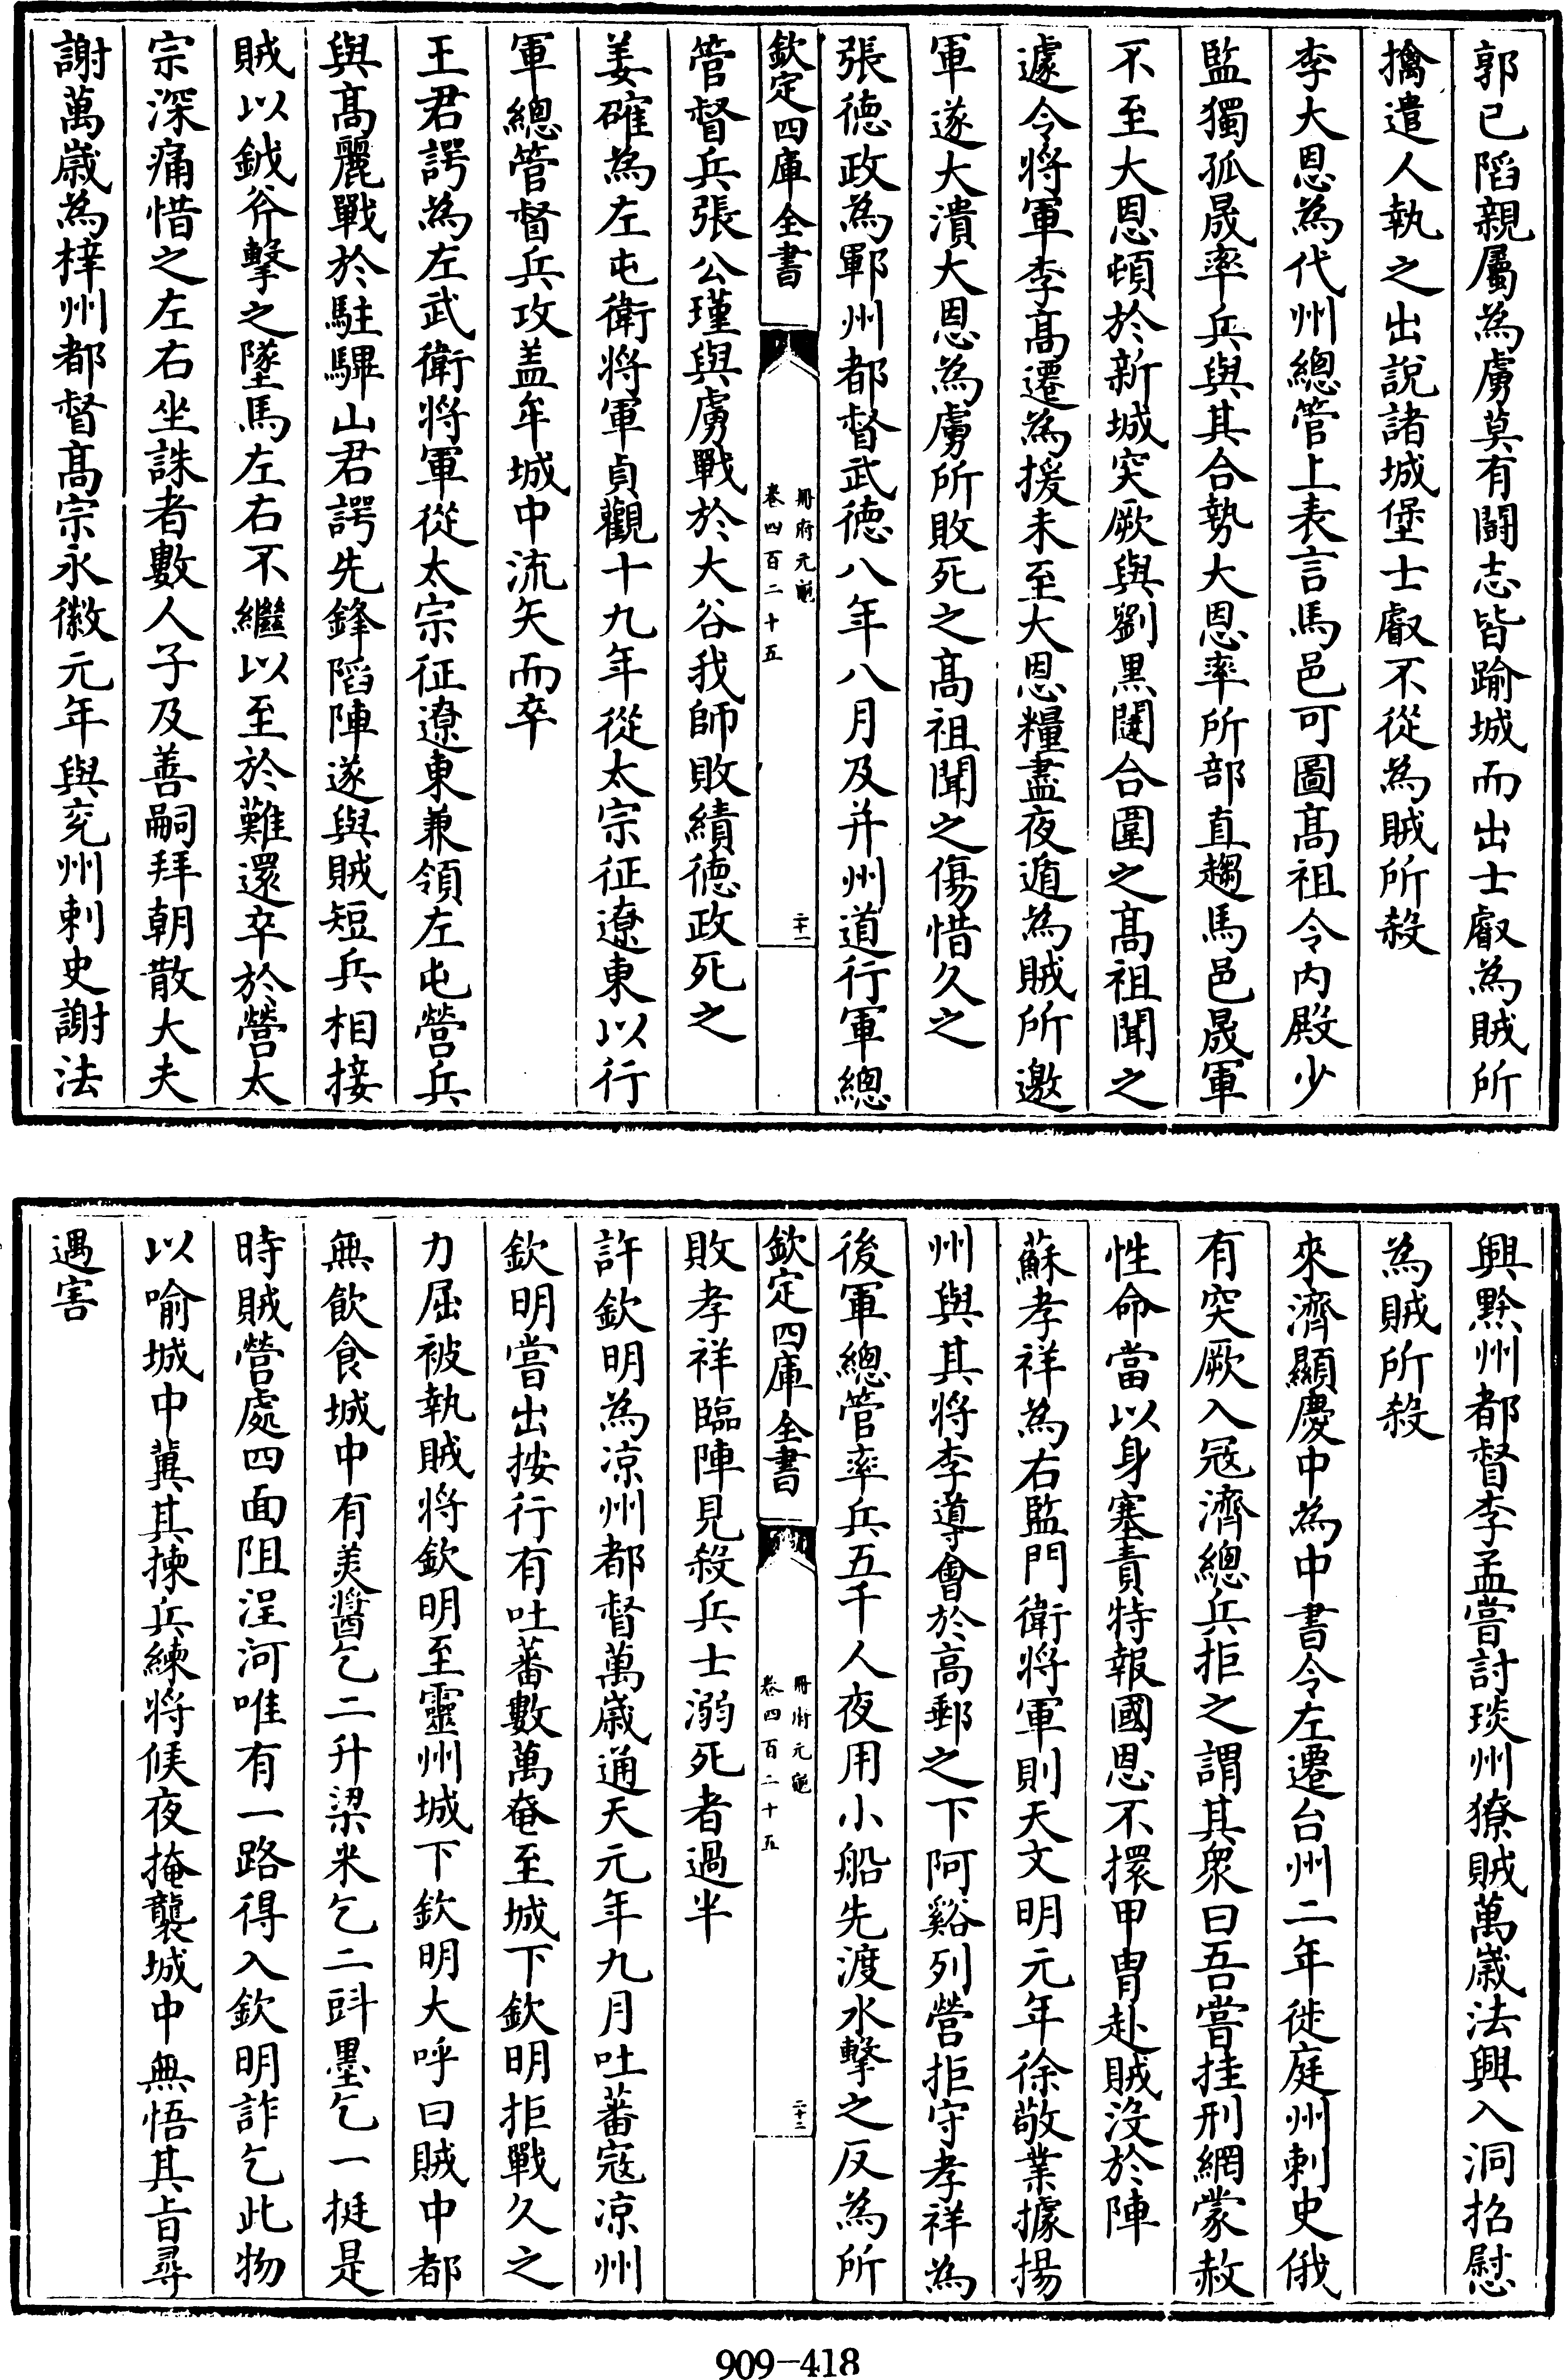 郭已䧟親屬為虜莫有鬬志皆踰城而出士叡為賊所
擒遣人執之出說諸城堡士叡不從為賊所殺
李大恩為代州總管上表言馬邑可圖髙祖令内殿少
監獨孤晟率兵與其合勢大恩率所部直趨馬邑晟軍
不至大恩頓於新城突厥與劉黒闥合圍之髙祖聞之
遽令将軍李髙遷為援未至大恩糧盡夜遁為賊所邀
軍遂大潰大恩為虜所敗死之髙祖聞之傷惜久之
張徳政為鄆州都督武徳八年八月及并州道行軍總
欽定四庫全書
冊府元龜
卷四百二十五
二十一
管督兵張公瑾與虜戰於大谷我師敗績徳政死之
姜確為左屯衛将軍貞觀十九年從太宗征遼東以行
軍總管督兵攻盖牟城中流矢而卒
王君諤為左武衛将軍從太宗征遼東兼領左屯營兵
與髙麗戰於駐驆山君諤先鋒䧟陣遂與賊短兵相接
賊以鉞斧擊之墜馬左右不繼以至於難還卒於營太
宗深痛惜之左右坐誅者數人子及善嗣拜朝散大夫
謝萬嵗為梓州都督髙宗永徽元年與兖州刺史謝法
興黔州都督李孟嘗討琰州獠賊萬嵗法興入洞招慰
為賊所殺
來濟顯慶中為中書令左遷台州二年徙庭州刺史俄
有突厥入冦濟總兵拒之謂其衆曰吾嘗挂刑網蒙赦
性命當以身塞責特報國恩不擐甲胄赴賊没於陣
蘇孝祥為右監門衛将軍則天文明元年徐敬業據揚
州與其将李導會於高郵之下阿谿列營拒守孝祥為
後軍總管率兵五千人夜用小船先渡水擊之反為所
欽定四庫全書
冊府元龜
卷四百二十五
二十二
敗孝祥臨陣見殺兵士溺死者過半
許欽明為凉州都督萬嵗通天元年九月吐蕃寇凉州
欽明嘗出按行有吐蕃數萬奄至城下欽明拒戰久之
力屈被執賊将欽明至靈州城下欽明大呼曰賊中都
無飲食城中有美醬乞二升粱米乞二㪷墨乞一挺是
時賊營處四面阻浧河唯有一路得入欽明詐乞此物
以喻城中冀其揀兵練将候夜掩襲城中無悟其㫖尋
遇害
909-418